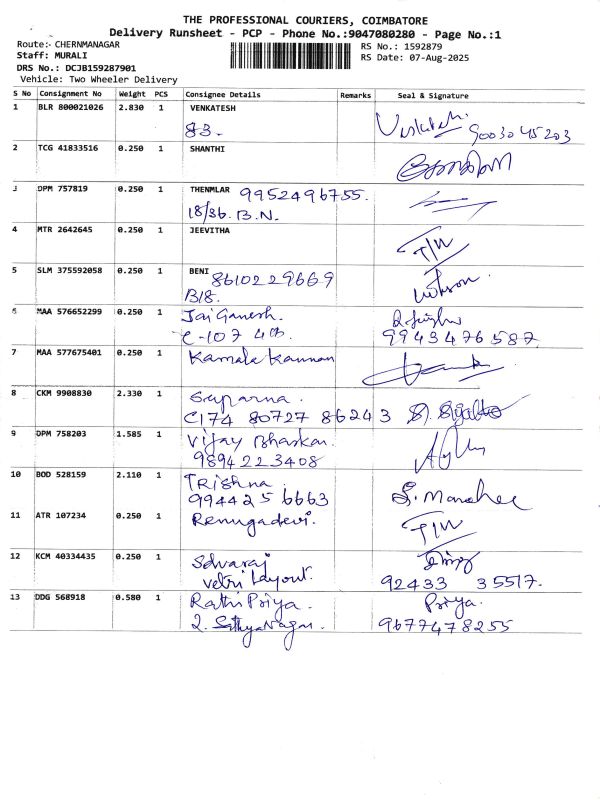 THE PROFESSIONAL COURIERS, COIMBATORE
Delivery Runsheet - PCP - Phone No.:9047080280 - Page No.:1
Route:- CHERNMANAGAR
RS No.: 1592879
Staff: MURALI
RS Date: 07-Aug-2025
DRS No.: DCJB159287901
Vehicle: Two Wheeler Delivery
S No Consignment No Weight PCS Consignee Details Remarks Seal & Signature
1 BLR 800021026 2.830 1 VENKATESH
83. Venkatesh. 9003045203
2 TCG 41833516 0.250 1 SHANTHI
3 DPM 757819 0.250 1 THENMLAR 9952496755.
18/36. B.N.
4 MTR 2642645 0.250 1 JEEVITHA
T/W
5 SLM 375592058 0.250 1 BENI 8610229669
B18.
6 MAA 576652299 0.250 1 Jai Ganesh.
C-107 4th 9943476587
7 MAA 577675401 0.250 1 Kamala Kannan
8 CKM 9908830 2.330 1 Suparna.
C174 80727 86243
9 DPM 758203 1.585 1 Vijay Bhaskar.
9894223408
10 BOD 528159 2.110 1 Trishna.
9944256663
11 ATR 107234 0.250 1 Renugadevi.
T/W
12 KCM 40334435 0.250 1 Selvaraj
vetri Layout. 92433 35517.
13 DDG 568918 0.580 1 Rathi Priya. Priya.
2. Sathya Nagar. 9677478255